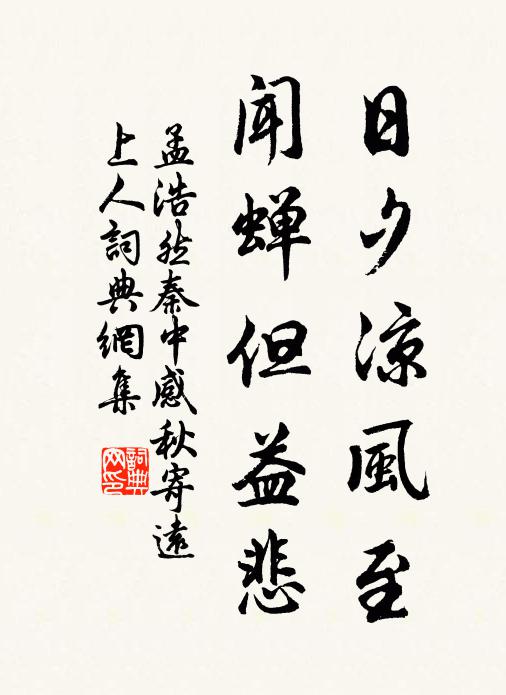 日夕涼風至
闻蝉但益悲
孟浩然秦中感秋寄遠
上人詞典網集
詞典
网印